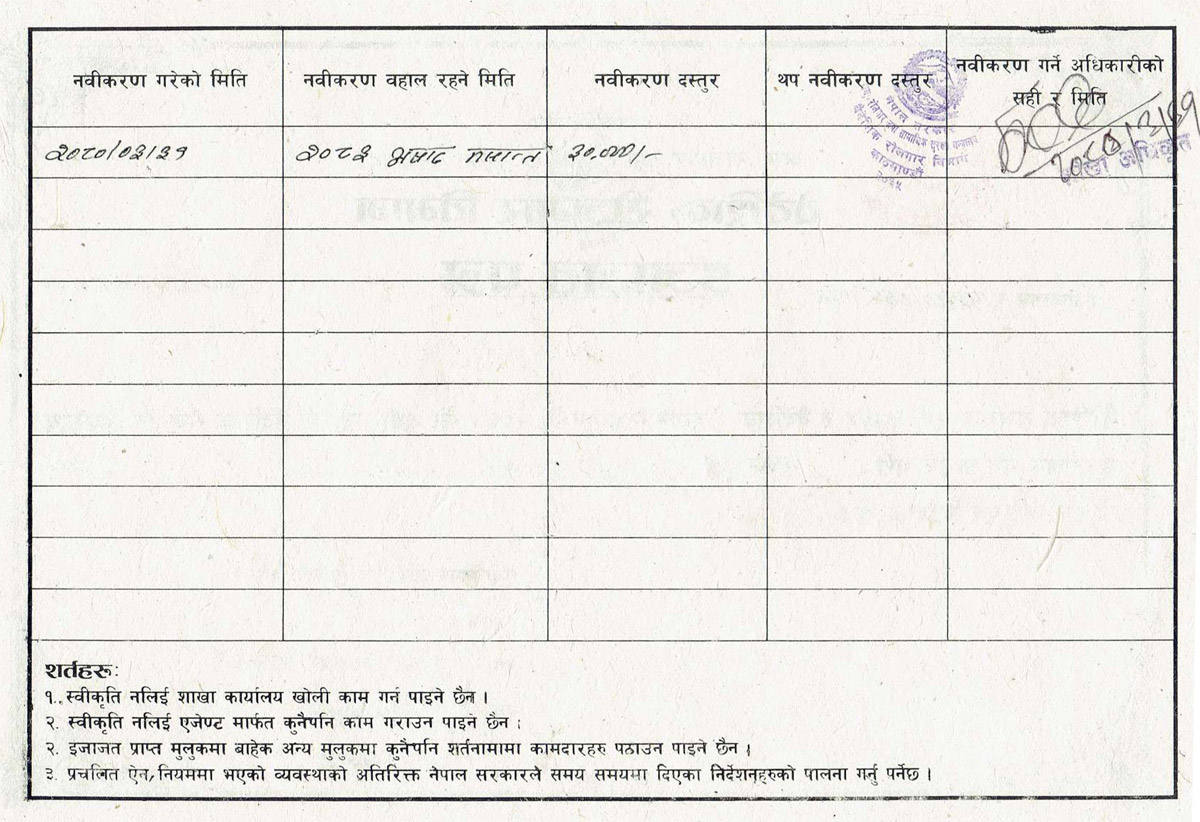 नवीकरण गरेको मिति नवीकरण वहाल रहने मिति नवीकरण दस्तुर थप नवीकरण दस्तुर नवीकरण गर्ने अधिकारीको
सही र मिति
२०८०/०३/३१ २०८३ असाढ मसान्त ३०,०००/-
नेपाल सरकार
वैदेशिक रोजगार विभाग
काठमाण्डौं
शाखा अधिकृत
शर्तहरू:
१. स्वीकृति नलिई शाखा कार्यालय खोली काम गर्न पाइने छैन ।
२. स्वीकृति नलिई एजेण्ट मार्फत कुनैपनि काम गराउन पाइने छैन ।
२. इजाजत प्राप्त मुलुकमा बाहेक अन्य मुलुकमा कुनैपनि शर्तनामामा कामदारहरु पठाउन पाइने छैन ।
३. प्रचलित ऐन, नियममा भएको व्यवस्थाको अतिरिक्त नेपाल सरकारले समय समयमा दिएका निर्देशनहरुको पालना गर्नु पर्नेछ ।